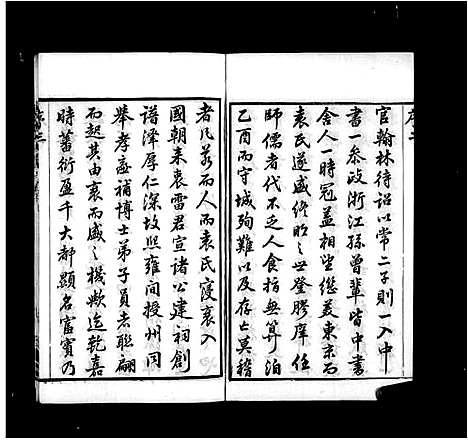 官翰林待詔以常二子則一入中
書一參政浙江孫曾輩皆中書
舍人一時冠蓋相望繼美東京而
袁氏遂盛終明之世登膠庠任
師儒者代不乏人食指無算洎
乙酉而守城殉難以及存亡莫稽
者凡若而人而袁氏寖衰入
國朝來袁雷君宣諸公建祠創
譜澤厚仁深故熙雍間授州同
舉孝廉補博士弟子員者聯翩
而起其由衰而盛之機歟迄乾嘉
時蕃衍盈千大都顯名富實乃